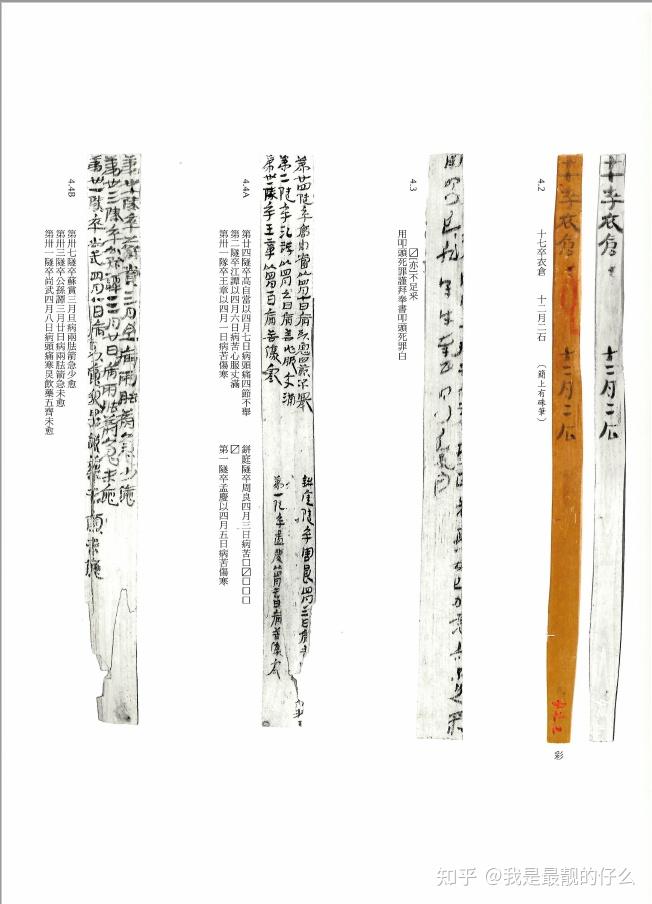 4.2
十七卒衣倉　十二月二石　（簡上有硃筆）
彩
4.3
☑亦不足采
用叩頭死罪謹拜奉書叩頭死罪白
4.4A
第廿四隧卒高自當以四月七日病頭痛四節不舉
第二隧卒江譚以四月六日病苦心服丈滿
第卅一隊卒王章以四月一日病苦傷寒
餅庭隧卒周良四月三日病苦□☑□□□
☑
第一隧卒孟慶以四月五日病苦傷寒
4.4B
第卅七隧卒蘇賞三月旦病兩胠箭急少愈
第卅三隧卒公孫譚三月廿日病兩胠箭急未愈
第卅一隧卒尚武四月八日病頭痛寒炅飲藥五齊未愈
知乎 @我是最靓的仔么